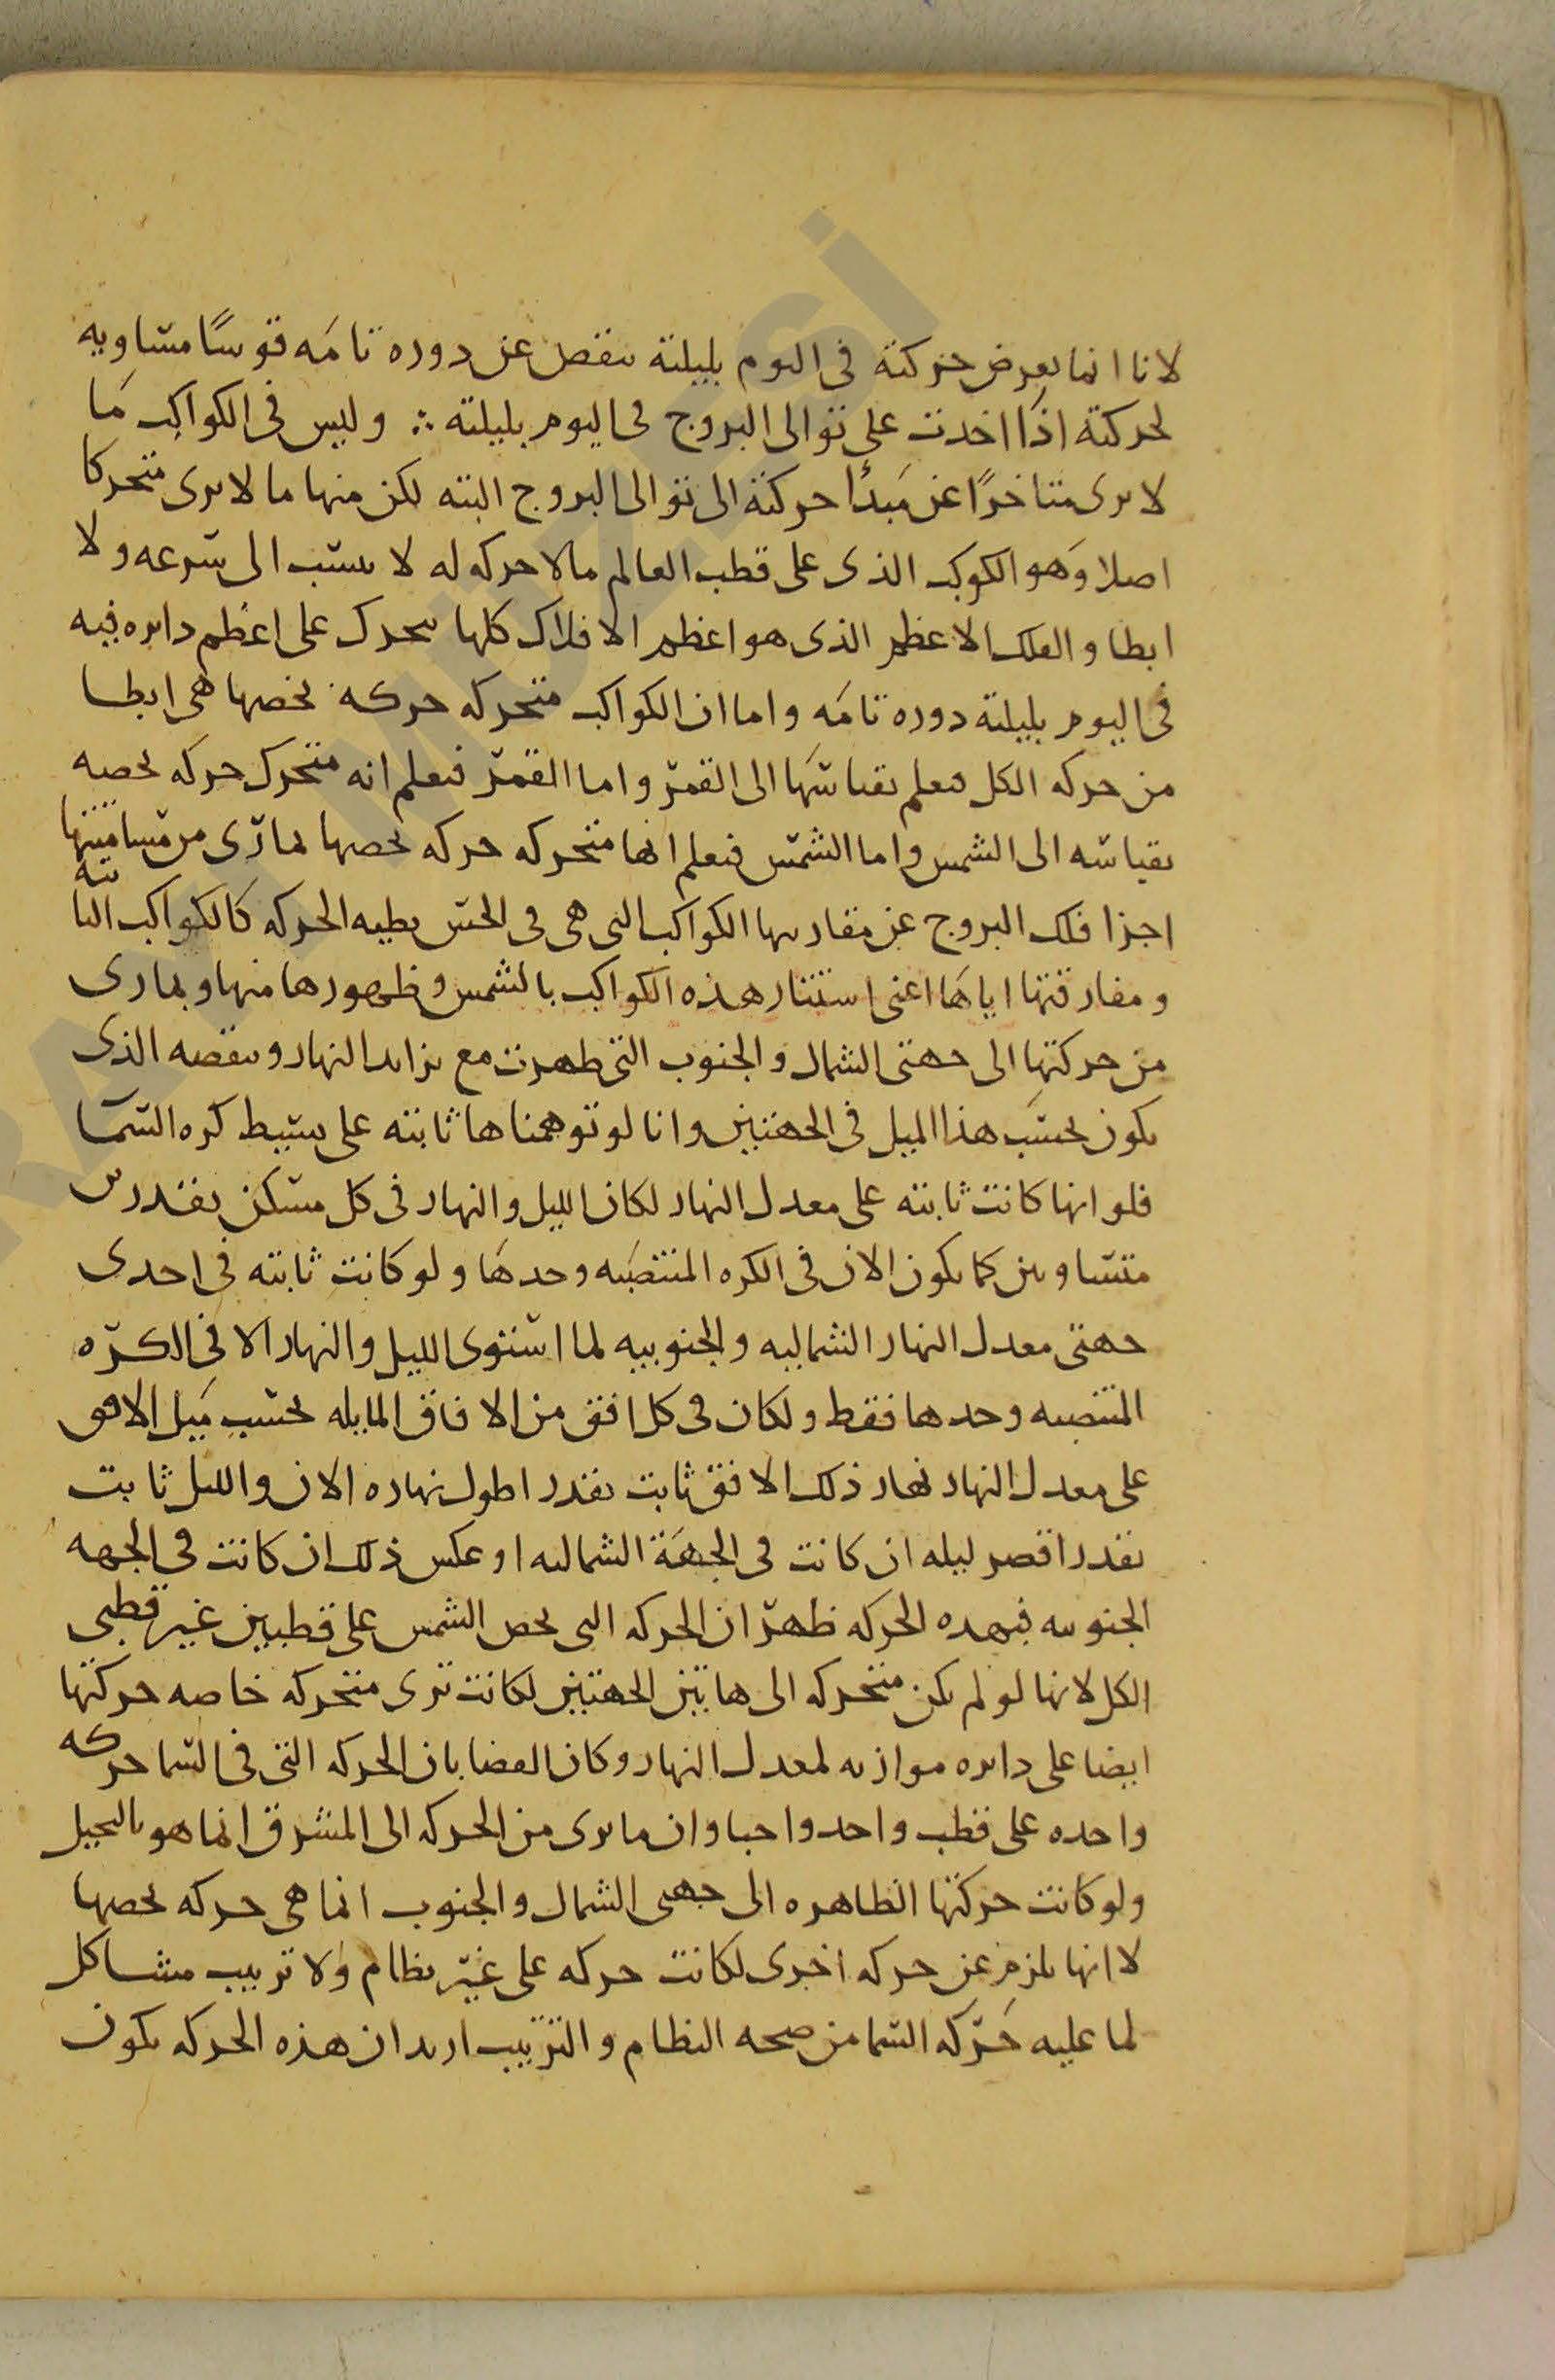 لانا انما نعرض حركته فى اليوم بليلته تنقص عن دوره تامَه قوسًا مساويه
لحركته اذا اخذت على توالى البروج فى اليوم بليلته ∴ وليس فى الكواكب مَا
لا يرى متاخرًا عن مَبدأ حركته الى توالى البروج البته لكن منها ما لا يرى متحركا
اصلا وَهو الكوكب الذى على قطب العالم مالا حركه له لا ينسب الى سرعه ولا
ابطا والفلك الاعظم الذى هو اعظم الافلاك كلها يتحرك على اعظم دايره فيه
فى اليوم بليلته دوره تامَه واما ان الكواكب متحركه حركه تخصها هى ابطا
من حركه الكل فيعلم بقياسهَا الى القمر واما القمر فيعلم انه متحرك حركه تخصه
بقياسه الى الشمس واما الشمس فيعلم انها متحركه حركه تخصها لما ترى من مسامتتها
اجزا فلك البروج عن مقاربتها الكواكب التى هى فى الحس بطيه الحركه كالكواكب الثابته
ومفارقتها اياهَا اعنى استتار هذه الكواكب بالشمس وظهورها منها وبما رى
من حركتها الى جهتى الشمال والجنوب التى ظهرت مع تزايد النهار وتنقصه الذى
يكون بحسَب هذا الميل فى الجهتين وانا لو توهمناها ثابته على بسيط كره السمَا
فلو انها كانت ثابته على معدل النهار لكان الليل والنهار فى كل مسكن بقدرين
متساويين كما يكون الان فى الكره المنتصَبه وحدهَا ولو كانت ثابته فى احدى
جهتى معدل النهار الشماليه والجنوبيه لما استوى الليل والنهار الا فى الكره
المنتصبه وحدها فقط ولكان فى كل افق من الافاق المايله بحسَب مَيل الافق
على معدل النهار نهار ذلك الافق ثابت بقدر اطول نهاره الان والليل ثابت
بقدر اقصر ليله ان كانت فى الجهَة الشماليه او عكس ذلك ان كانت فى الجهه
الجنوبيه فبهذه الحركه ظهر ان الحركه التى تخص الشمس على قطبين غير قطبى
الكل لانها لو لم تكن متحركه الى هاتين الجهتين لكانت ترى متحركه خاصه حركتها
ايضا على دايره موازيه لمعدل النهار وكان القضا بان الحركه التى فى السما حركه
واحده على قطب واحد واجبا وان ما يرى من الحركه الى المشرق انما هو بالتخيل
ولو كانت حركتها الظاهره الى جهتى الشمال والجنوب انما هى حركه تخصها
لا انها تلزم عن حركه اخرى لكانت حركه على غير نظام ولا ترتيب مشاكل
لما عليه حَركه السما من صحه النظام والترتيب اريد ان هذه الحركه يكون